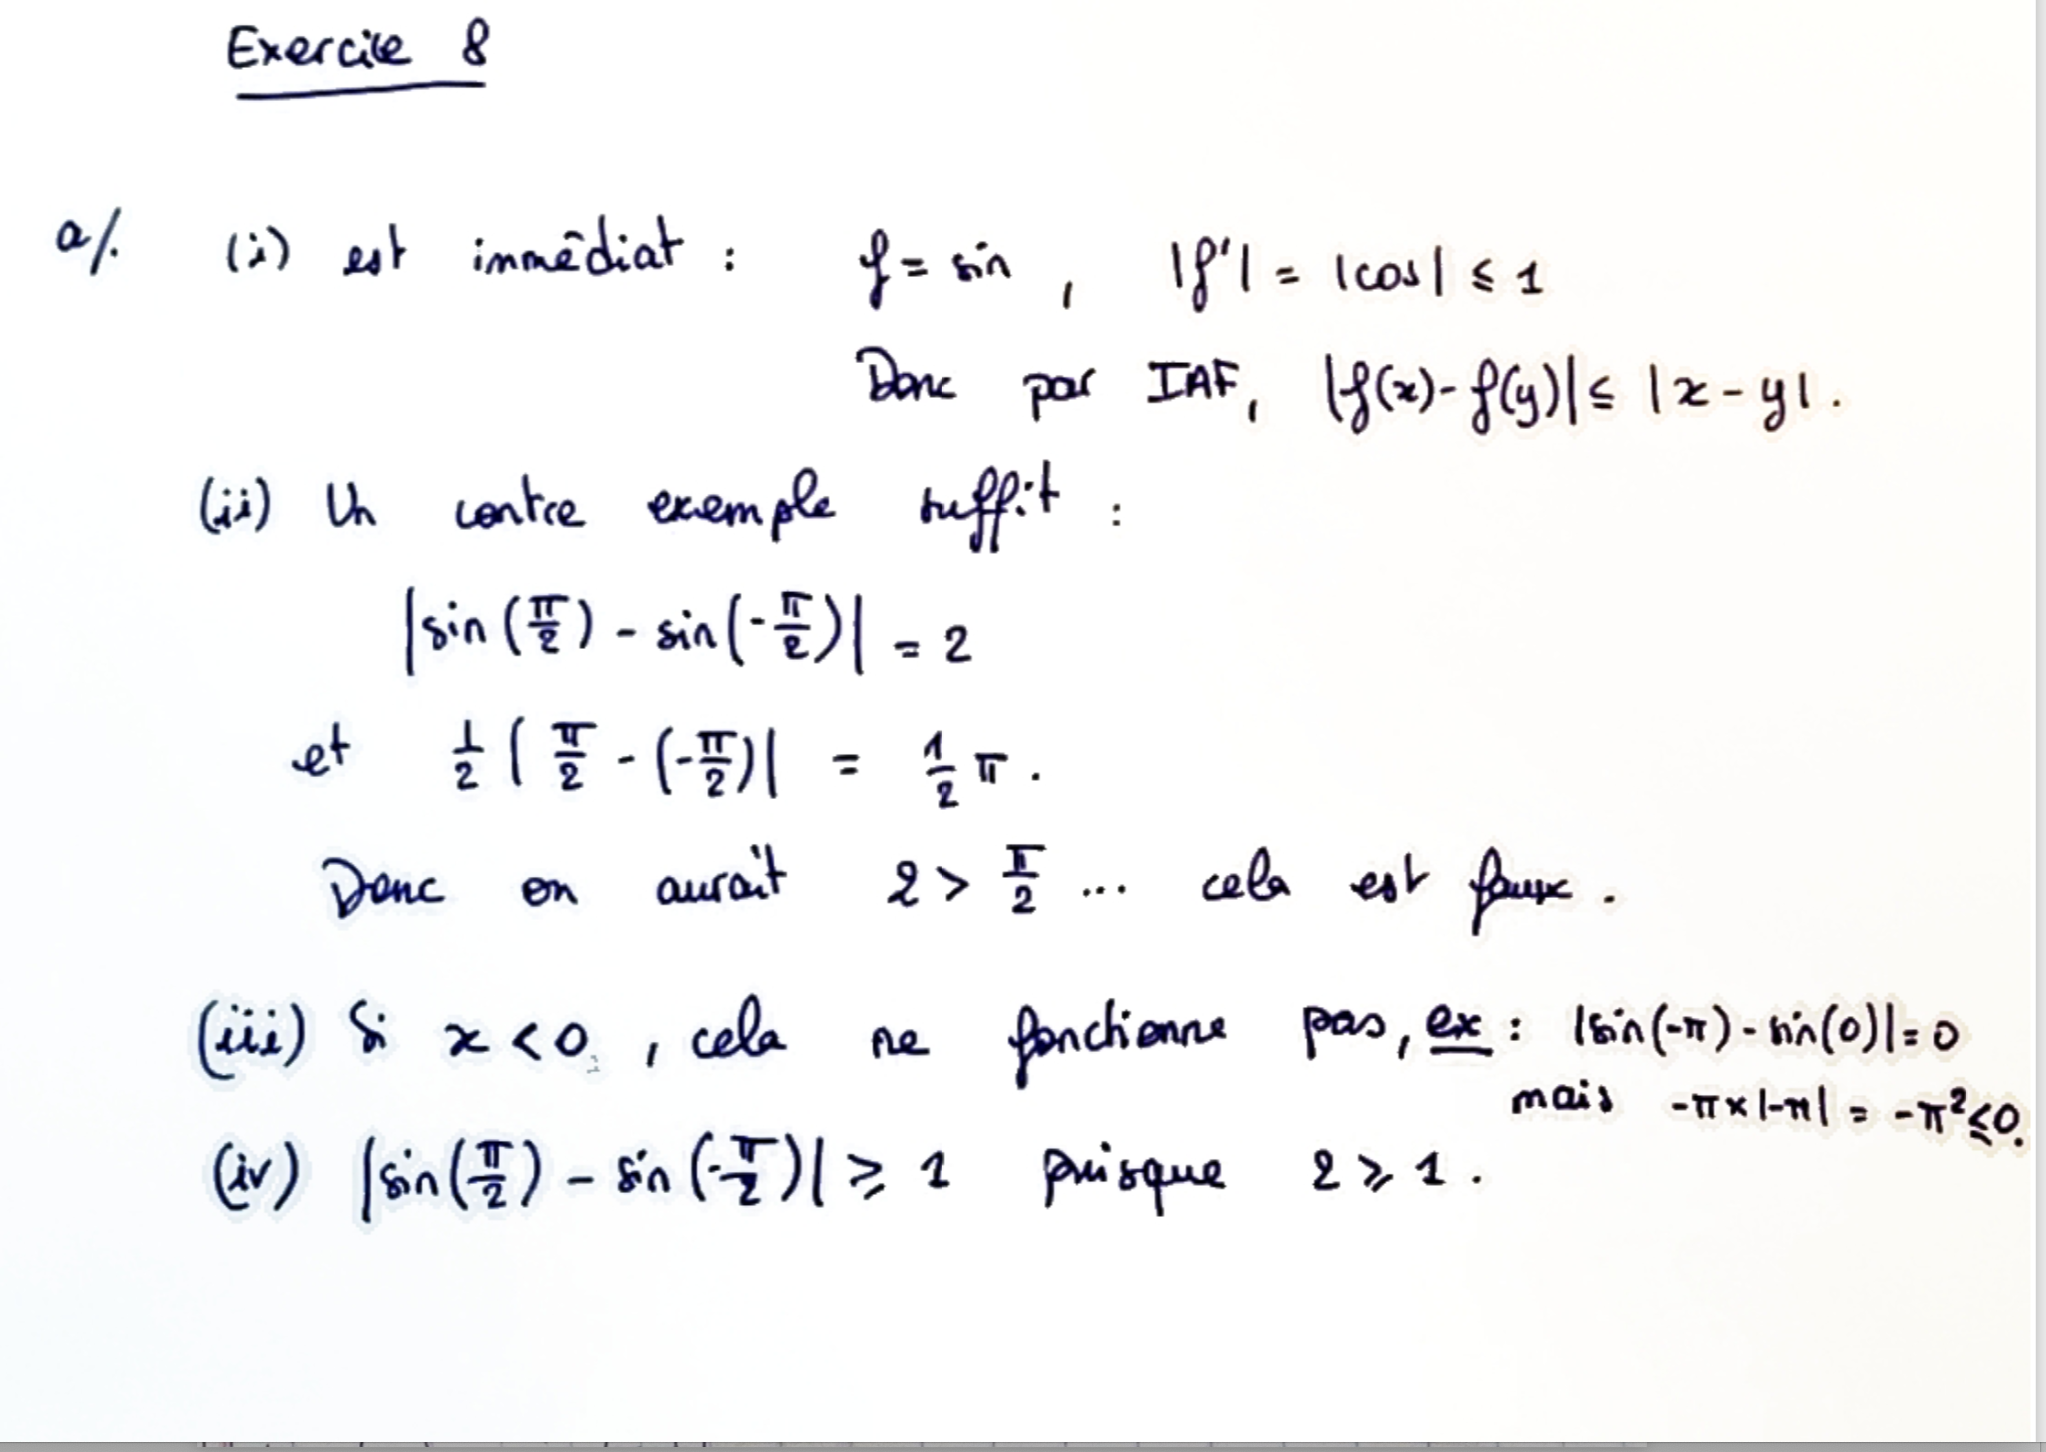 Exercice 8
a/. (i) est immédiat : f = sin , |f'| = |cos| ≤ 1
Donc par IAF, |f(x) - f(y)| ≤ |x - y|.
(ii) Un contre exemple suffit :
|sin(π/2) - sin(-π/2)| = 2
et 1/2 |π/2 - (-π/2)| = 1/2 π.
Donc on aurait 2 > π/2 ... cela est faux.
(iii) Si x < 0 , cela ne fonctionne pas, ex : |sin(-π) - sin(0)| = 0
mais -π×|-π| = -π² ≤ 0.
(iv) |sin(π/2) - sin(-π/2)| ≥ 1 puisque 2 ≥ 1.